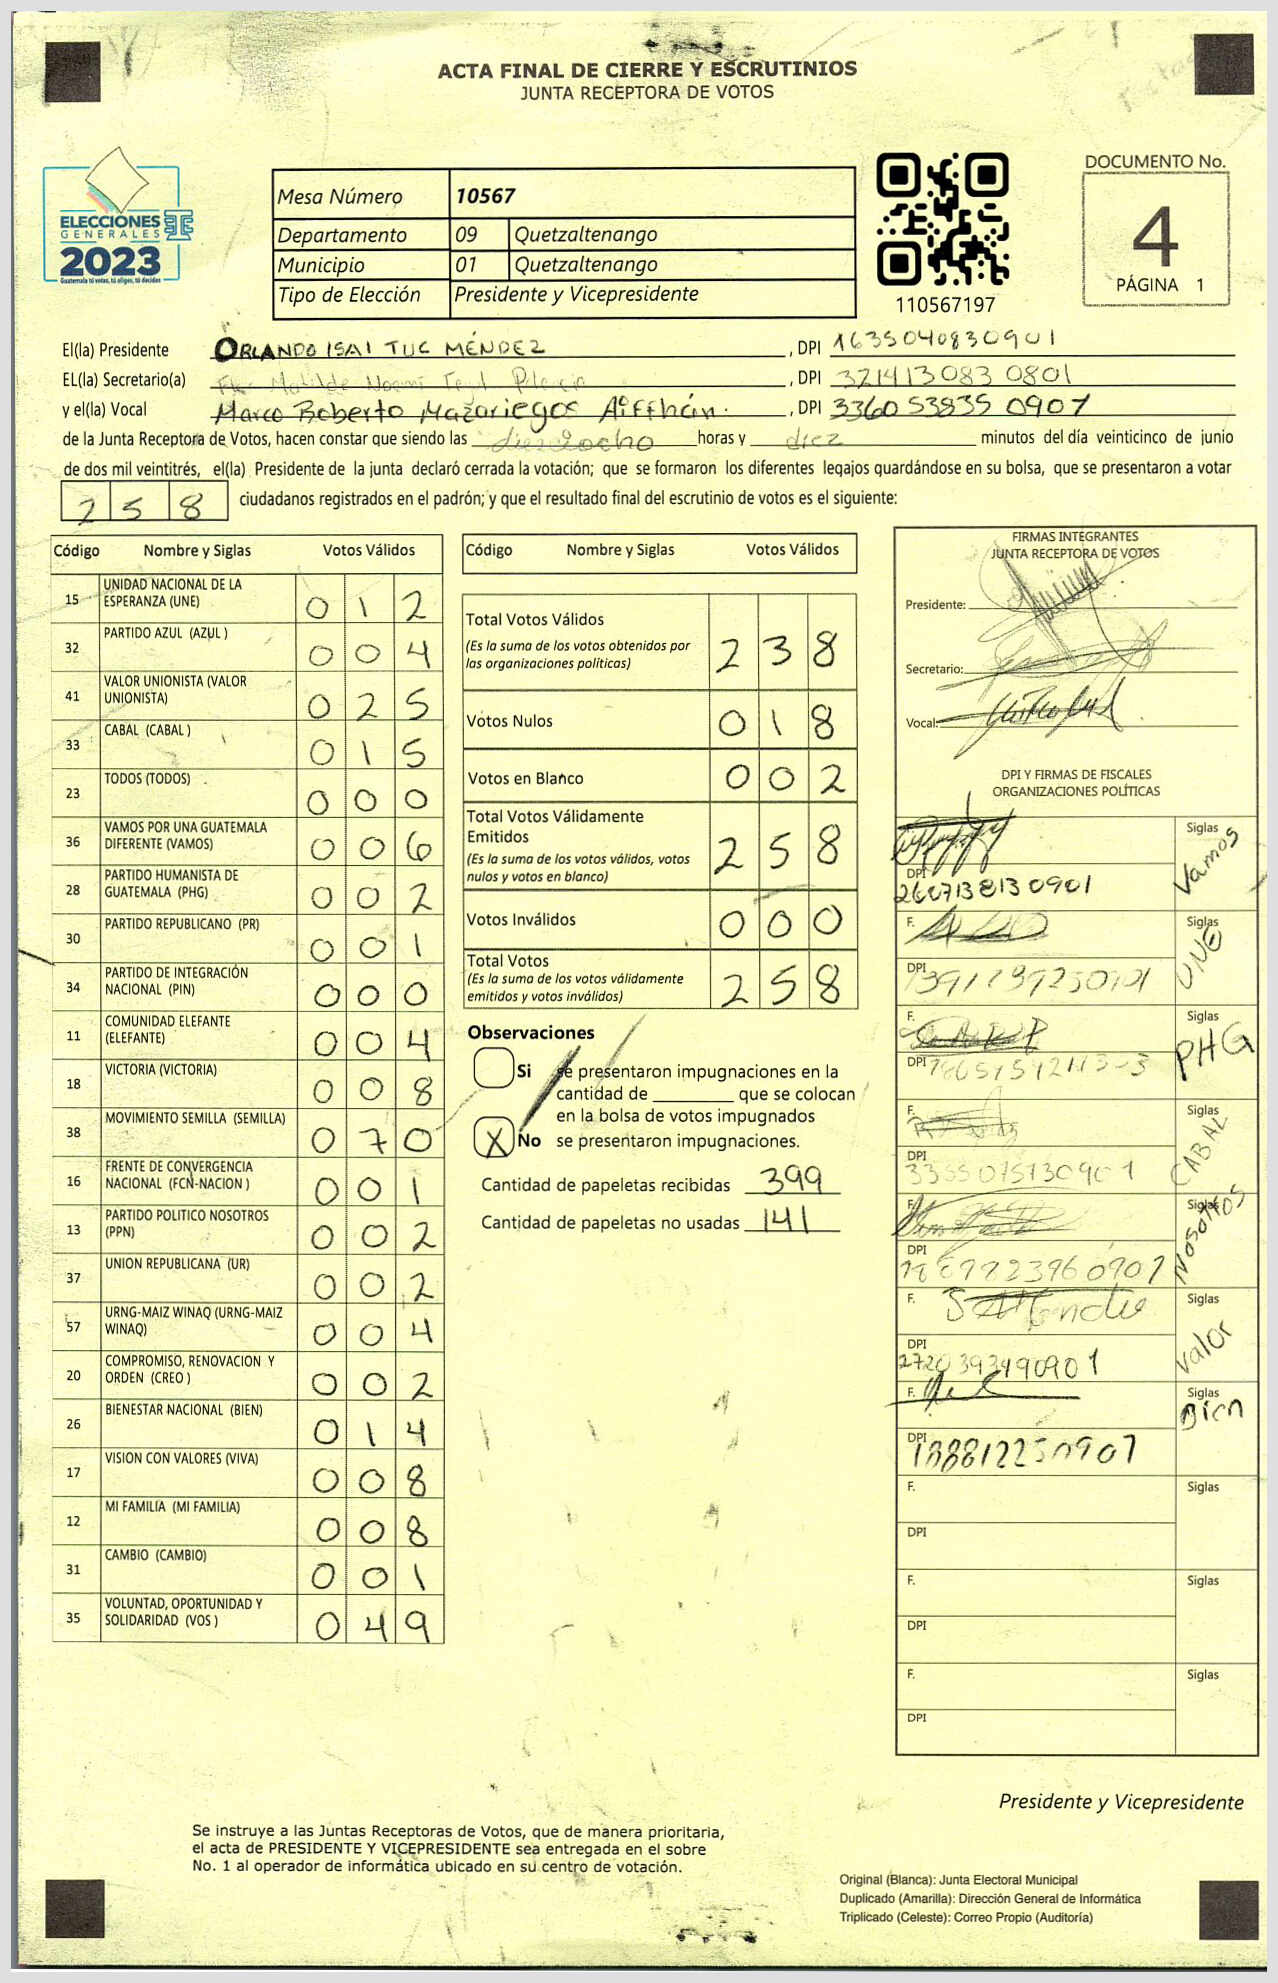 ACTA FINAL DE CIERRE Y ESCRUTINIOS
JUNTA RECEPTORA DE VOTOS
DOCUMENTO No.
4
PÁGINA 1
ELECCIONES
GENERALES
2023
Guatemala tú votas, tú eliges, tú decides
Mesa Número 10567
Departamento 09 Quetzaltenango
Municipio 01 Quetzaltenango
Tipo de Elección Presidente y Vicepresidente
110567197
El(la) Presidente ORLANDO ISAI TUC MÉNDEZ, DPI 1635040830901
EL(la) Secretario(a) Matilde Noemí, DPI 3214130830801
y el(la) Vocal Marco Roberto Mazariegos, DPI 3360538350907
de la Junta Receptora de Votos, hacen constar que siendo las dieciocho horas y diez minutos del día veinticinco de junio
de dos mil veintitrés, el(la) Presidente de la junta declaró cerrada la votación; que se formaron los diferentes legajos quardándose en su bolsa, que se presentaron a votar
258 ciudadanos registrados en el padrón; y que el resultado final del escrutinio de votos es el siguiente:
Código Nombre y Siglas Votos Válidos
15 UNIDAD NACIONAL DE LA ESPERANZA (UNE) 012
32 PARTIDO AZUL (AZUL ) 004
41 VALOR UNIONISTA (VALOR UNIONISTA) 025
33 CABAL (CABAL ) 015
23 TODOS (TODOS) 000
36 VAMOS POR UNA GUATEMALA DIFERENTE (VAMOS) 006
28 PARTIDO HUMANISTA DE GUATEMALA (PHG) 002
30 PARTIDO REPUBLICANO (PR) 001
34 PARTIDO DE INTEGRACIÓN NACIONAL (PIN) 000
11 COMUNIDAD ELEFANTE (ELEFANTE) 004
18 VICTORIA (VICTORIA) 008
38 MOVIMIENTO SEMILLA (SEMILLA) 070
16 FRENTE DE CONVERGENCIA NACIONAL (FCN-NACION ) 001
13 PARTIDO POLITICO NOSOTROS (PPN) 002
37 UNION REPUBLICANA (UR) 002
57 URNG-MAIZ WINAQ (URNG-MAIZ WINAQ) 004
20 COMPROMISO, RENOVACION Y ORDEN (CREO ) 002
26 BIENESTAR NACIONAL (BIEN) 014
17 VISION CON VALORES (VIVA) 008
12 MI FAMILIA (MI FAMILIA) 008
31 CAMBIO (CAMBIO) 001
35 VOLUNTAD, OPORTUNIDAD Y SOLIDARIDAD (VOS ) 049
Código Nombre y Siglas Votos Válidos
Total Votos Válidos 238
(Es la suma de los votos obtenidos por
las organizaciones políticas)
Votos Nulos 018
Votos en Blanco 002
Total Votos Válidamente
Emitidos 258
(Es la suma de los votos válidos, votos
nulos y votos en blanco)
Votos Inválidos 000
Total Votos 258
(Es la suma de los votos válidamente
emitidos y votos inválidos)
Observaciones
Si se presentaron impugnaciones en la
cantidad de ________ que se colocan
en la bolsa de votos impugnados
X No se presentaron impugnaciones.
Cantidad de papeletas recibidas 399
Cantidad de papeletas no usadas 141
FIRMAS INTEGRANTES
JUNTA RECEPTORA DE VOTOS
Presidente:
Secretario:
Vocal:
DPI Y FIRMAS DE FISCALES
ORGANIZACIONES POLÍTICAS
Siglas Vamos
DPI 2607138130901
F. Siglas UNE
DPI
F. Siglas PHG
DPI
F. Siglas CABAL
DPI
F. Siglas Nosotros
DPI
F. Siglas Valor
DPI
F. Siglas Bien
DPI
F. Siglas
DPI
F. Siglas
DPI
F. Siglas
DPI
Presidente y Vicepresidente
Se instruye a las Juntas Receptoras de Votos, que de manera prioritaria,
el acta de PRESIDENTE Y VICEPRESIDENTE sea entregada en el sobre
No. 1 al operador de informática ubicado en su centro de votación.
Original (Blanca): Junta Electoral Municipal
Duplicado (Amarilla): Dirección General de Informática
Triplicado (Celeste): Correo Propio (Auditoría)